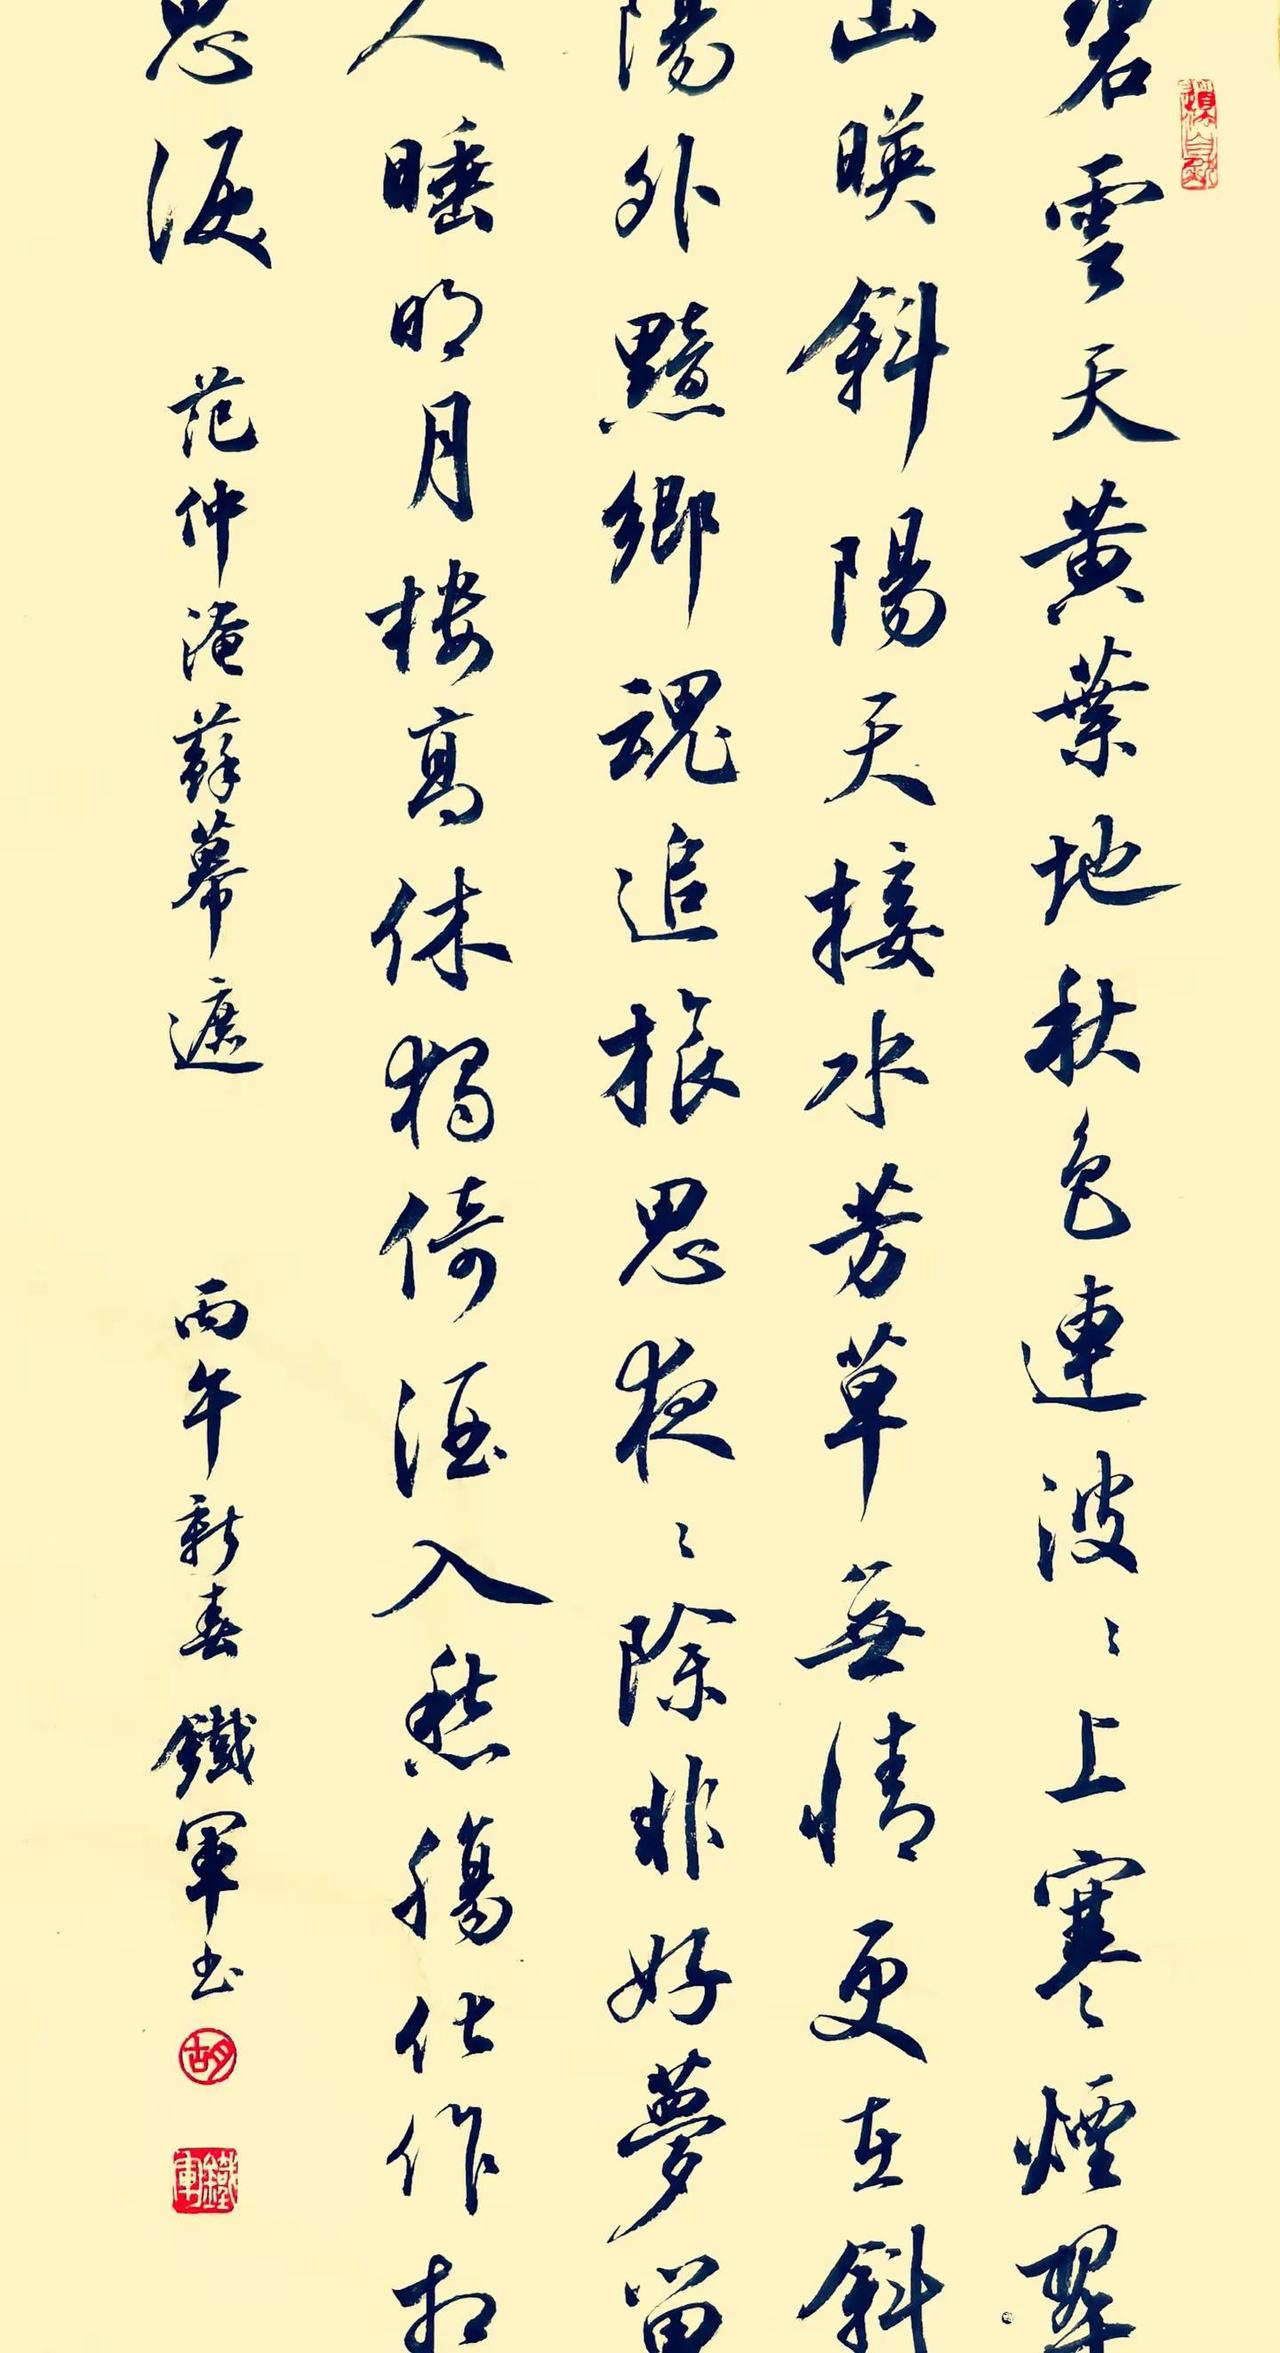 碧雲天黃葉地秋色連波〻上寒煙翠
山暎斜陽天接水芳草無情更在斜
陽外黯鄉魂追旅思夜〻除非好夢留
人睡明月樓高休獨倚酒入愁腸化作相
思淚 范仲淹蘇幕遮 丙午新春 鐵軍书
胡
鐵軍